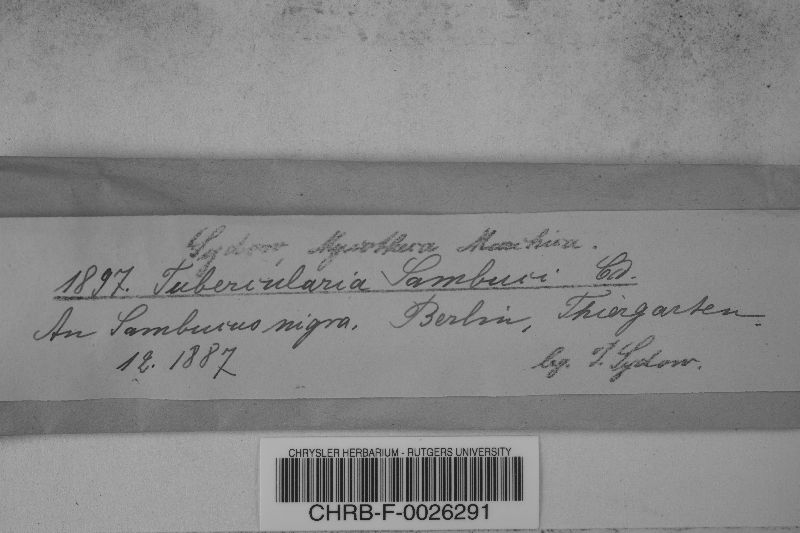 Sydow, Mycotheca Marchica.
1897. Tubercularia Sambuci Cd.
An Sambucus nigra. Berlin, Thiergarten
12. 1887 leg. P. Sydow.
CHRYSLER HERBARIUM - RUTGERS UNIVERSITY
CHRB-F-0026291